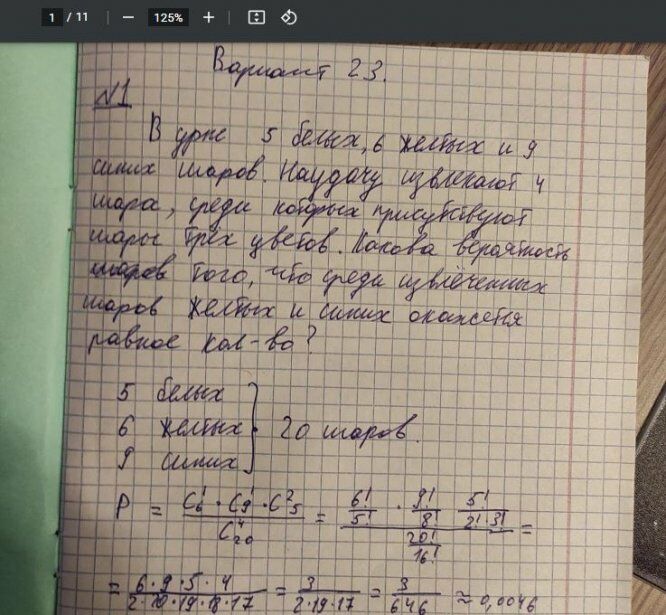 1 / 11 — 125% +
Вариант 23.
№1
В урне 5 белых, 6 желтых и 9
синих шаров. Наудачу извлекают 4
шара, среди которых присутствуют
шары трёх цветов. Какова вероятность
того, что среди извлеченных
шаров желтых и синих окажется
равное кол-во?
5 белых
6 желтых } 20 шаров.
9 синих
P = C¹₆ · C¹₉ · C²₅ / C⁴₂₀ = 6!/5! · 9!/8! · 5!/2!·3! / 20!/16! =
= 6·9·5·4 / 2·20·19·18·17 = 3 / 2·19·17 = 3 / 646 ≈ 0,0046